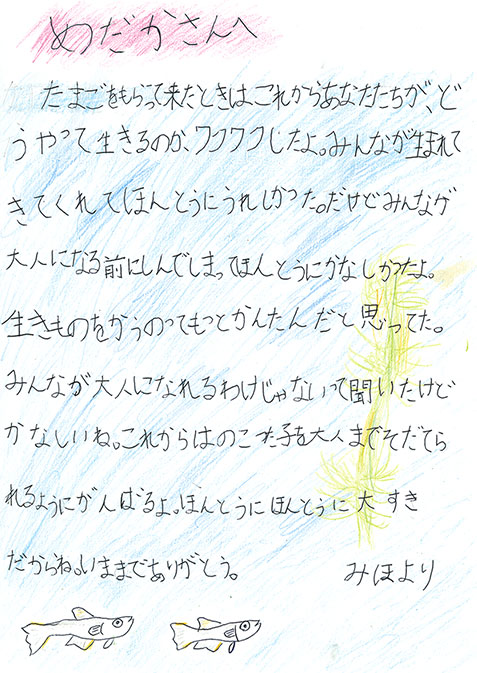 めだかさんへ
たまごをもらって来たときは、これからあなたたちが、ど
うやって生きるのか、ワクワクしたよ。みんなが生まれて
きてくれてほんとうにうれしかった。だけどみんなが
大人になる前にしんでしまってほんとうにかなしかったよ。
生きものをかうのってもっとかんたんだと思ってた。
みんなが大人になれるわけじゃないって聞いたけど
かなしいね。これからはのこった子を大人までそだてら
れるようにがんばるよ。ほんとうにほんとうに大すき
だからね。いままでありがとう。 みほより